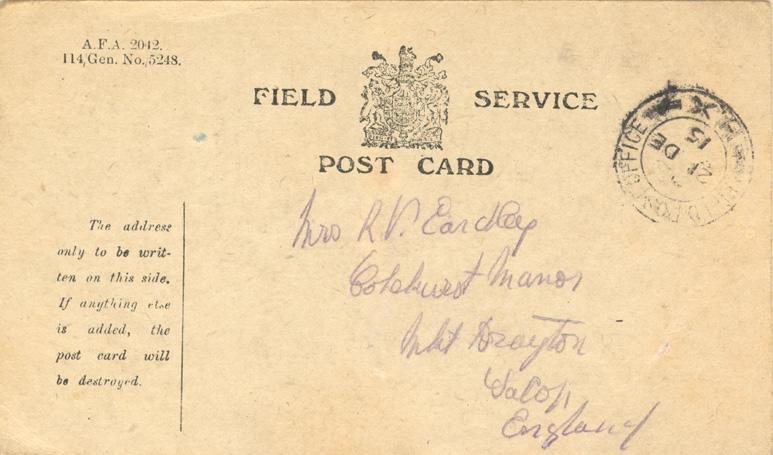 A.F.A. 2042.
114/Gen. No./5248.
FIELD SERVICE
POST CARD
FIELD POST OFFICE
X
21 DE
15
The address
only to be writ-
ten on this side.
If anything else
is added, the
post card will
be destroyed.
Mrs R V. Eardley
Colehurst Manor
Mkt Drayton
Salop
England